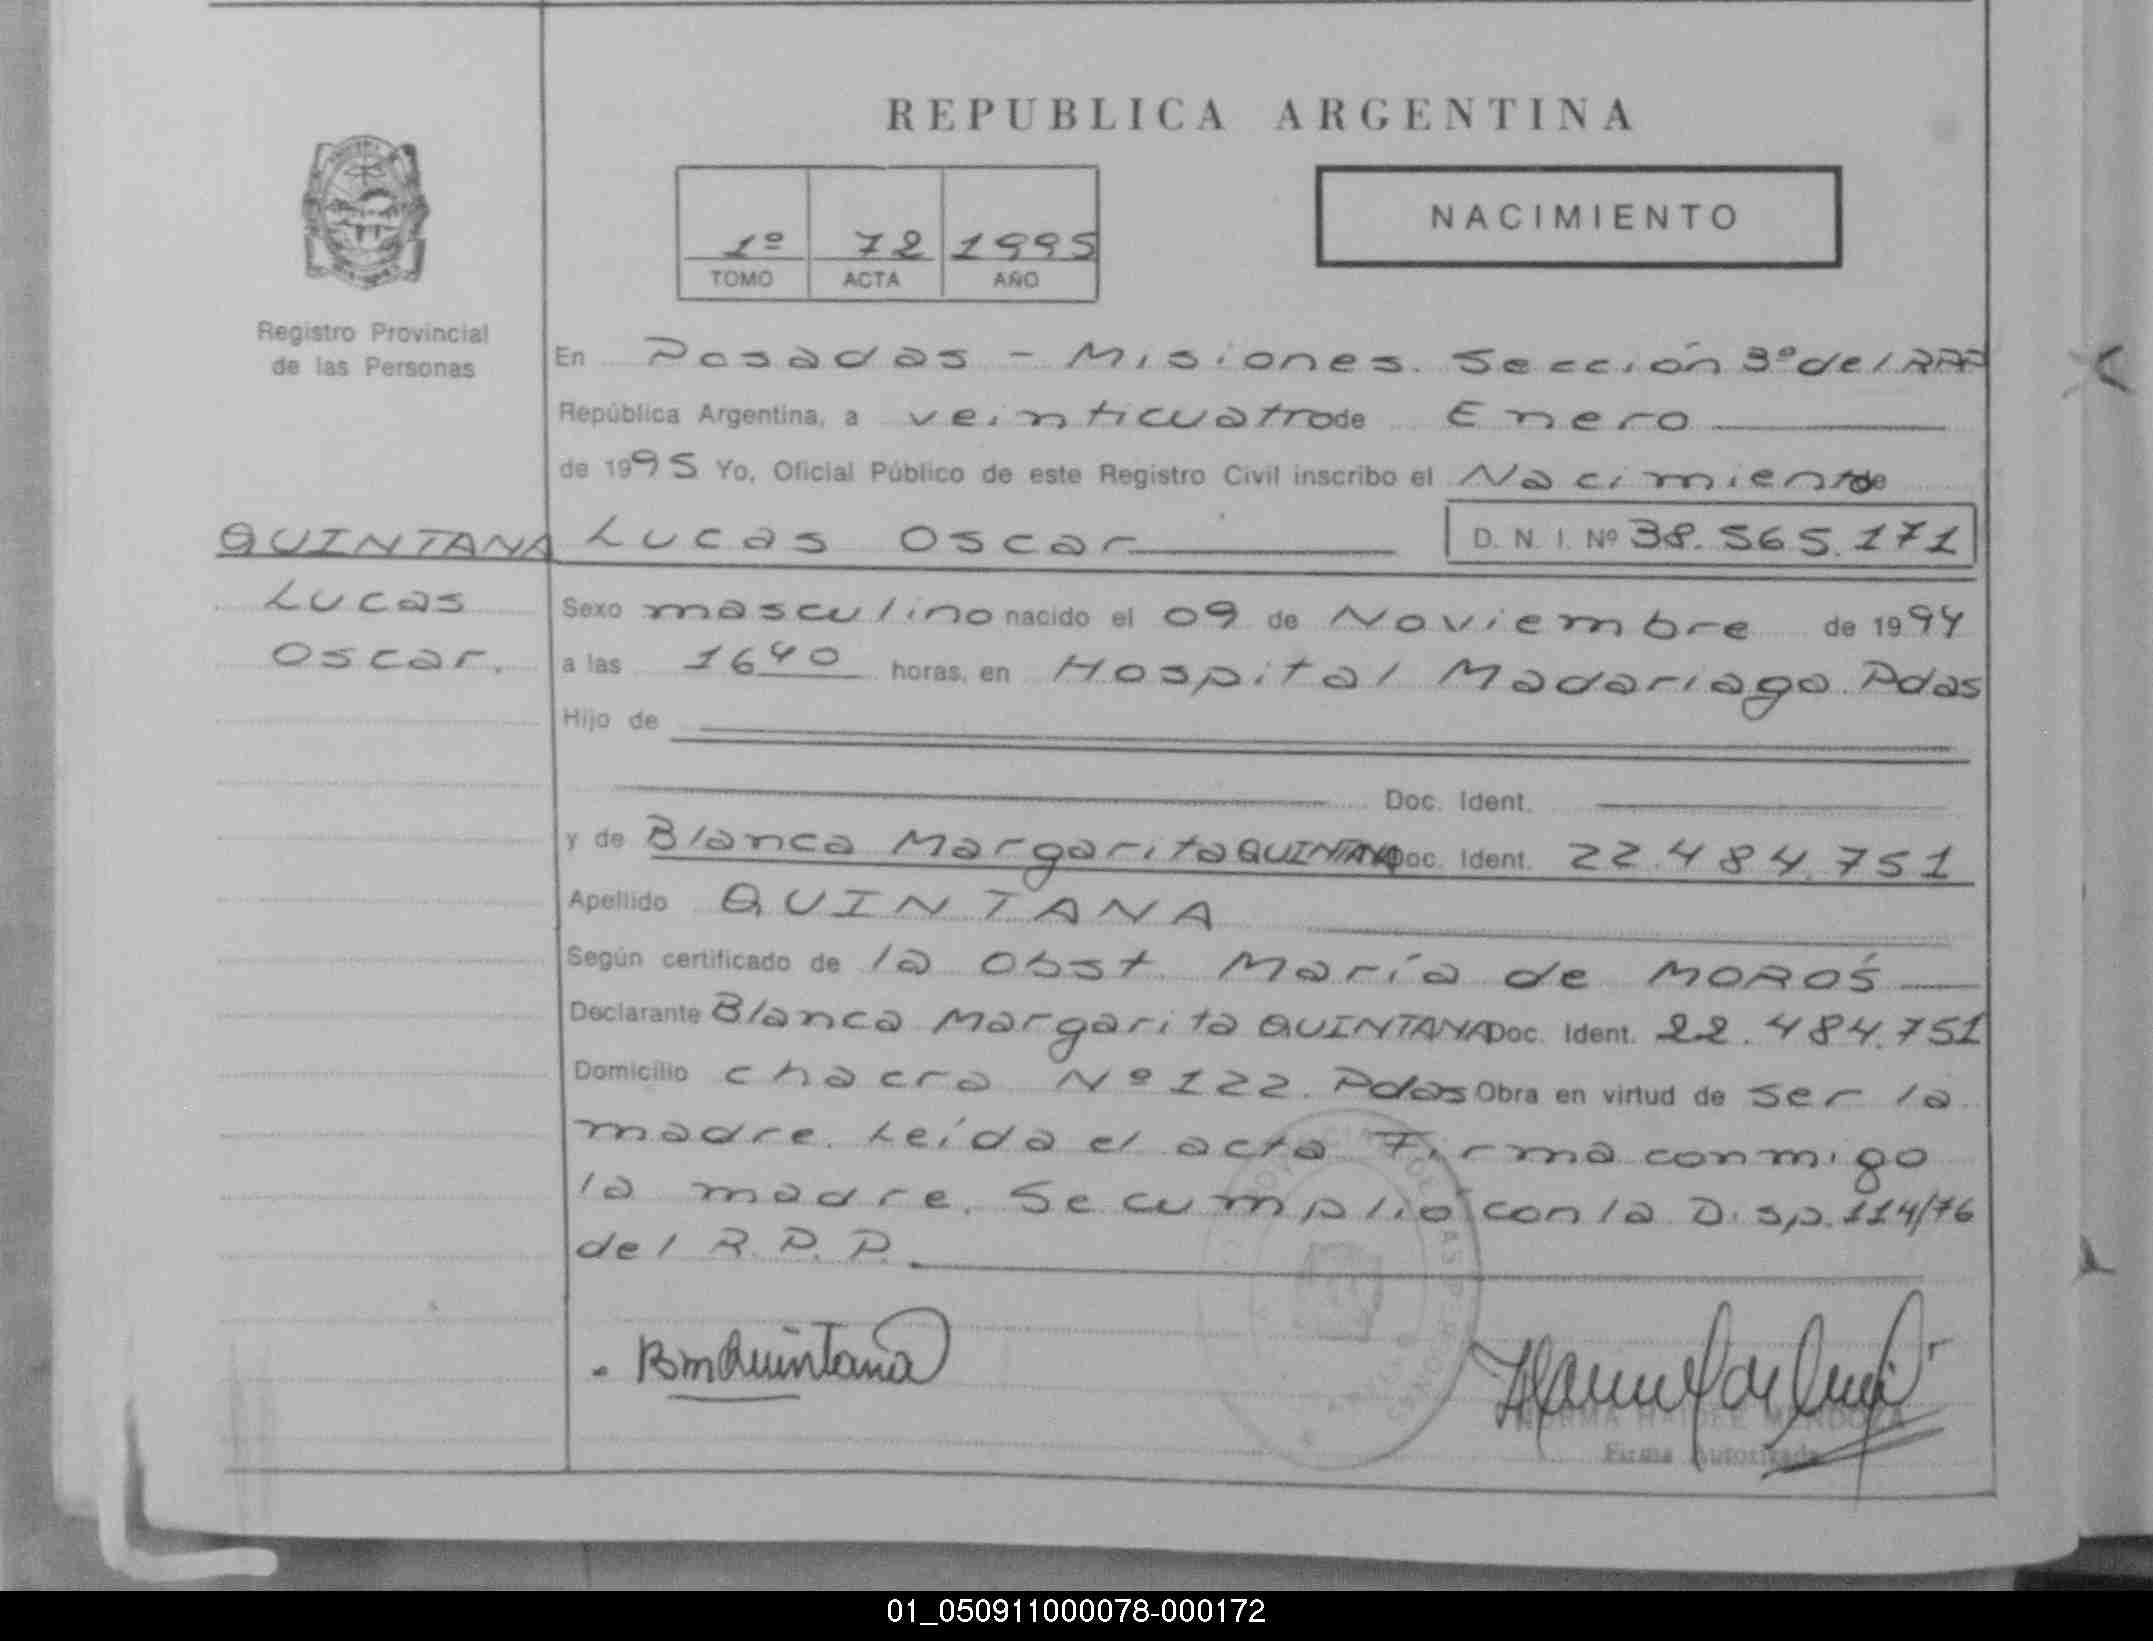 REPUBLICA ARGENTINA
NACIMIENTO
1º 72 1995
TOMO ACTA AÑO
Registro Provincial
de las Personas
En Posadas - Misiones. Sección 3º del RPP
República Argentina, a veinticuatro de Enero
de 1995 Yo, Oficial Público de este Registro Civil inscribo el Nacimiento de
QUINTANA Lucas Oscar D. N. I. Nº 38.565.171
Lucas
Oscar.
Sexo masculino nacido el 09 de Noviembre de 1994
a las 1640 horas, en Hospital Madariaga. Pdas
Hijo de
Doc. Ident.
y de Blanca Margarita QUINTANA Doc. Ident. 22.484.751
Apellido QUINTANA
Según certificado de la Obst. María de MOROS
Declarante Blanca Margarita QUINTANA Doc. Ident. 22.484.751
Domicilio chacra Nº 122. Pdas Obra en virtud de ser la
madre. Leída el acta Firma conmigo
la madre. Se cumplió con la Disp. 114/76
del R. P. P.
BmQuintana
NORMA HAIDEE MENDOZA
Firma Autorizada
01_050911000078-000172